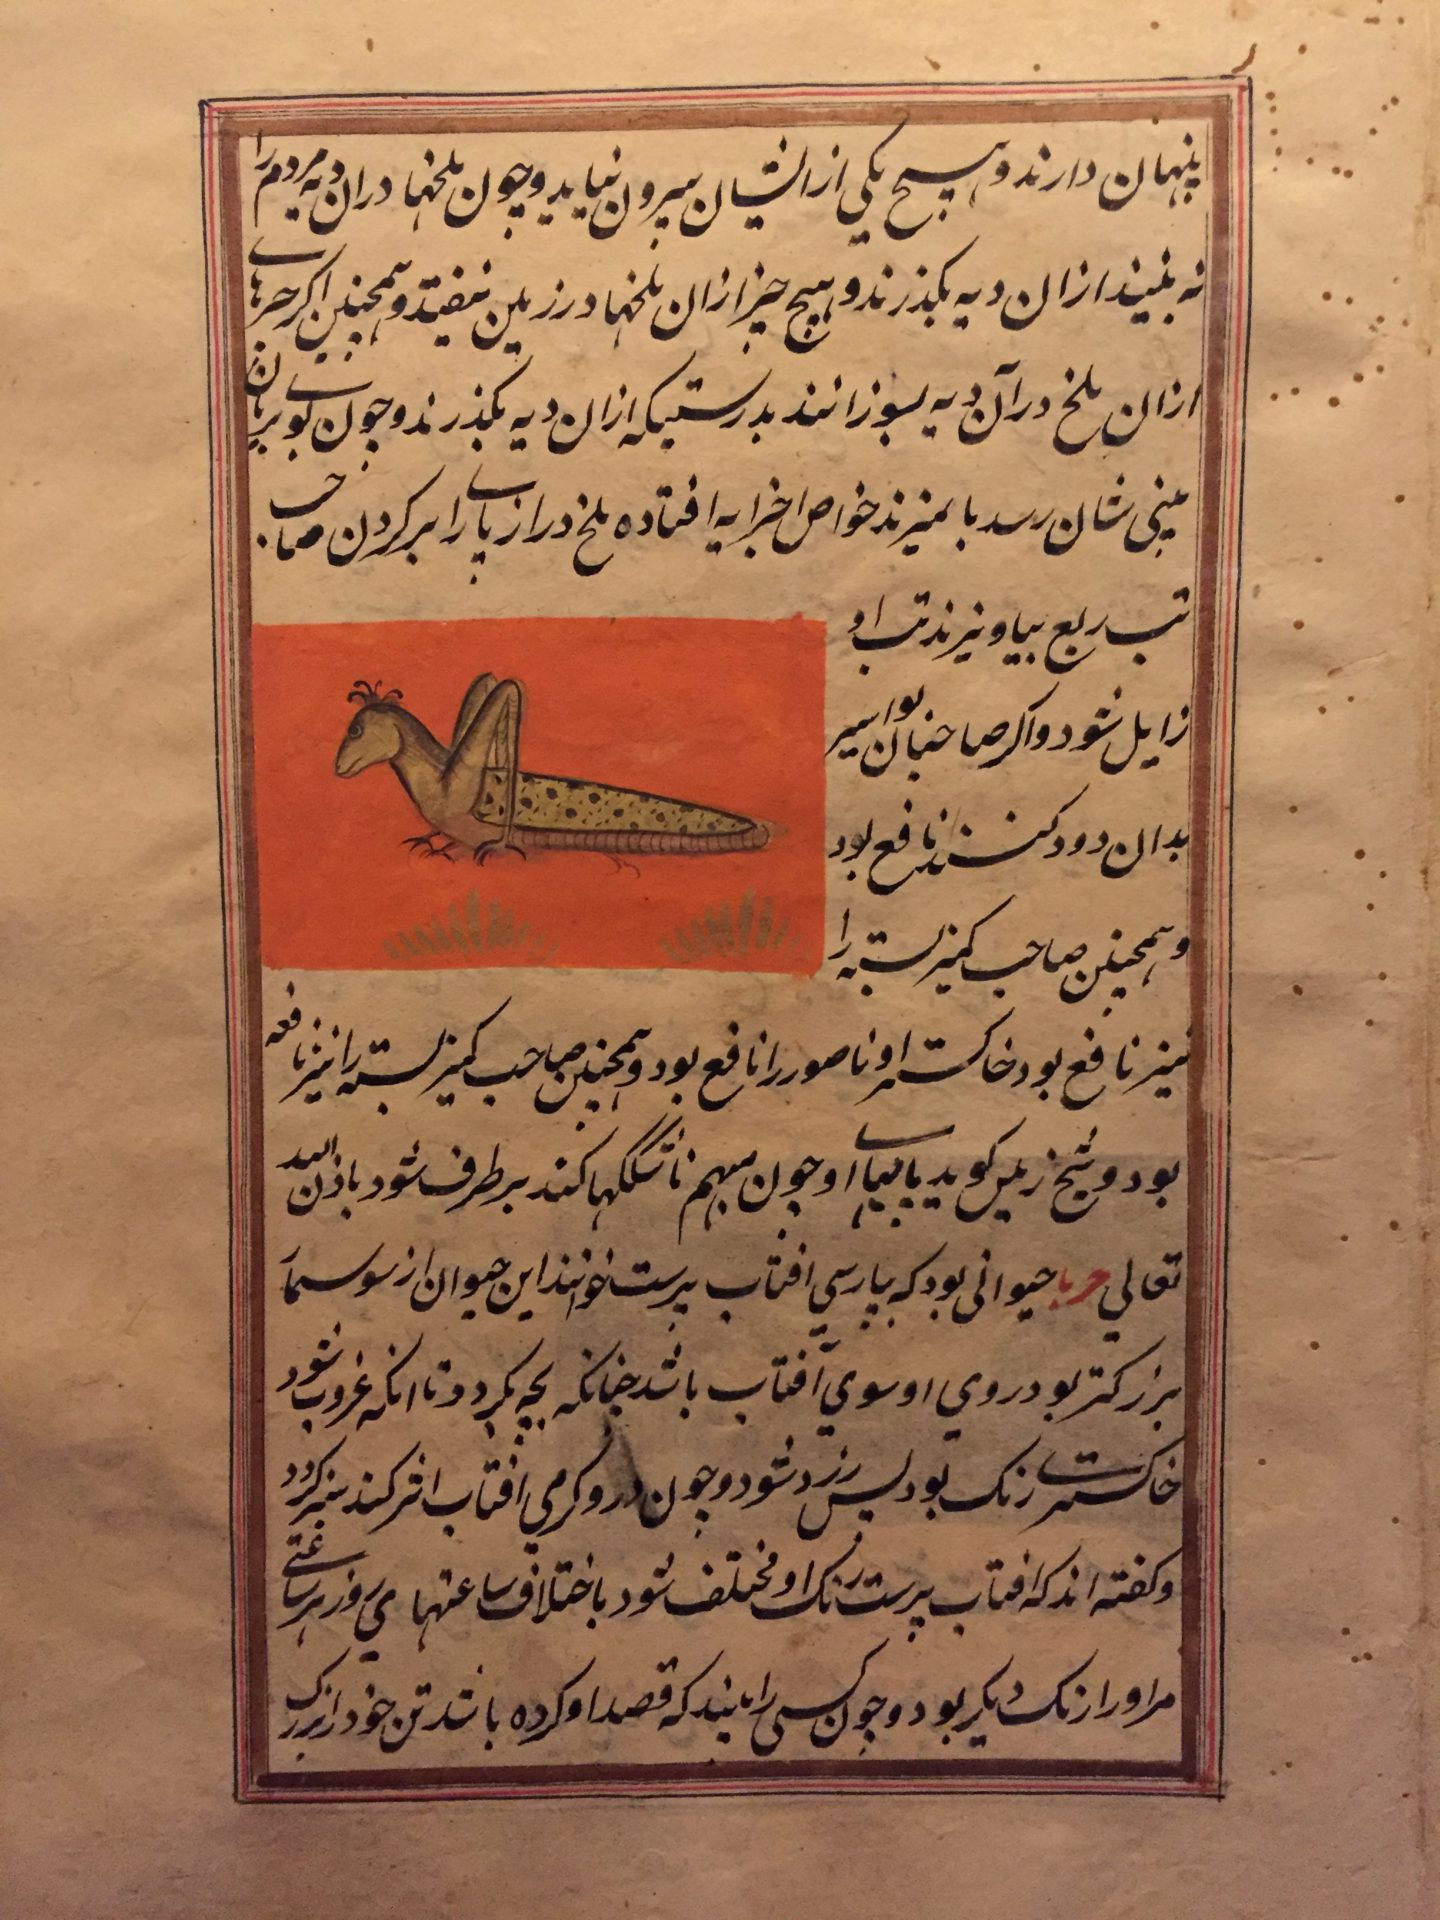 پنهان دارند و هیچ یکی از ایشان بیرون نیاید و چون ملخها دران دیه مردم را
نه بینند ازان دیه بکذرند و هیچ چیز ازان ملخها در زمین نیفتد و همچنین اکر جزهای
ازان ملخ در آن دیه بسوزانند بدرستیکه ازان دیه بکذرند و چون بوی بریان
بینی شان رسد یا بمیرند خواص اجزایه افتاده ملخ دراز پای را بر کردن صاحب
تب ربع بیاویزند تب او
زایل شود و اکر صاحبان بواسیر
بدان دود کنند نافع بود
و همچنین صاحب کمیز بسته را
نیز نافع بود خاکستر او ناصور را نافع بود و همچنین صاحب کمیز بسته را نیز نافعه
بود و شیخ رئیس کوید پایهای او چون مبهم ناشکلها کنند بر طرف شود باذن الله
تعالی حربا حیوانی بود که بپارسی افتاب پرست خوانند این حیوان از سوسمار
بزرکتر بود روی او سوی آفتاب باشد چنانکه بچه بکردد تا انکه غروب شود
خاکستری رنک بود پس زرد شود و چون درو کرمی افتاب اثر کند سبز کردد
و کفته اند که افتاب پرست رنک او مختلف شود باختلاف ساعتهای روز هر ساعتی
مر او را رنک دیکر بود و چون کسی را بیند که قصد او کرده باشد تن خود را بزرک